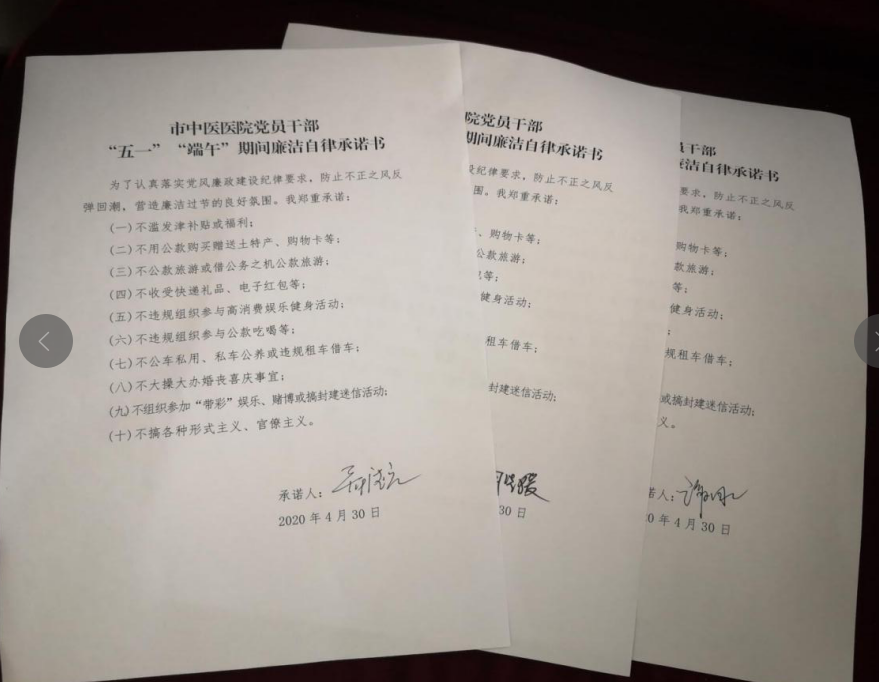 市中医医院党员干部
“五一”“端午”期间廉洁自律承诺书
为了认真落实党风廉政建设纪律要求，防止不正之风反
弹回潮，营造廉洁过节的良好氛围。我郑重承诺：
(一)不滥发津补贴或福利；
(二)不用公款购买赠送土特产、购物卡等；
(三)不公款旅游或借公务之机公款旅游；
(四)不收受快递礼品、电子红包等；
(五)不违规组织参与高消费娱乐健身活动；
(六)不违规组织参与公款吃喝等；
(七)不公车私用、私车公养或违规租车借车；
(八)不大操大办婚丧喜庆事宜；
(九)不组织参加“带彩”娱乐、赌博或搞封建迷信活动；
(十)不搞各种形式主义、官僚主义。
承诺人：
2020年4月30日
院党员干部
期间廉洁自律承诺书
设纪律要求，防止不正之风反
围。我郑重承诺：
、购物卡等；
公款旅游；
包等；
健身活动；
租车借车；
封建迷信活动；
30日
员干部
洁自律承诺书
要求，防止不正之风反
我郑重承诺：
购物卡等；
款旅游；
等；
健身活动；
；
规租车借车；
或搞封建迷信活动；
义。
诺人：
0年4月30日